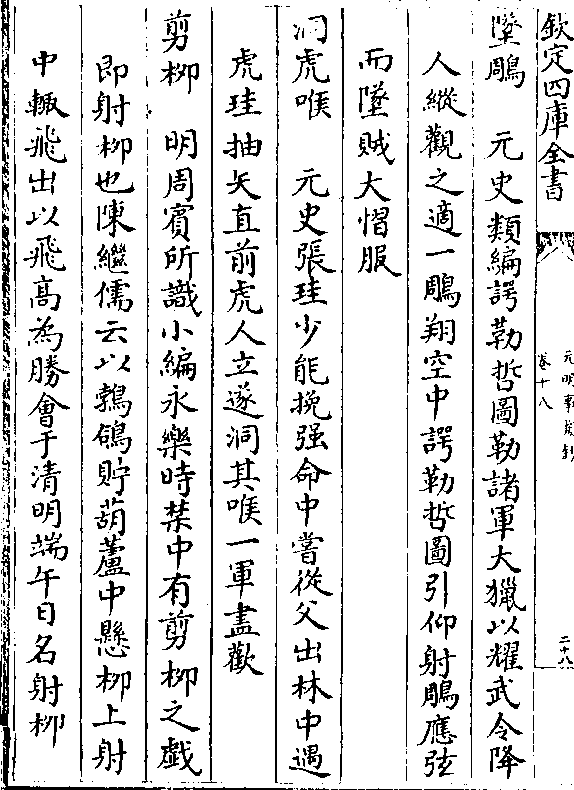 欽定四庫全書
元明事類鈔
卷十八
二十八
墜鵰　元史類編諤勒哲圖勒諸軍大獵以耀武令降
人縱觀之適一鵰翔空中諤勒哲圖引仰射鵰應弦
而墜賊大慴服
洞虎喉　元史張珪少能挽强命中嘗從父出林中遇
虎珪抽矢直前虎人立遂洞其喉一軍盡歡
剪栁　明周賓所識小編永樂時禁中有剪栁之戲
即射栁也陳繼儒云以鶉鴿貯葫蘆中懸栁上射
中輙飛出以飛髙為勝會于清明端午日名射栁